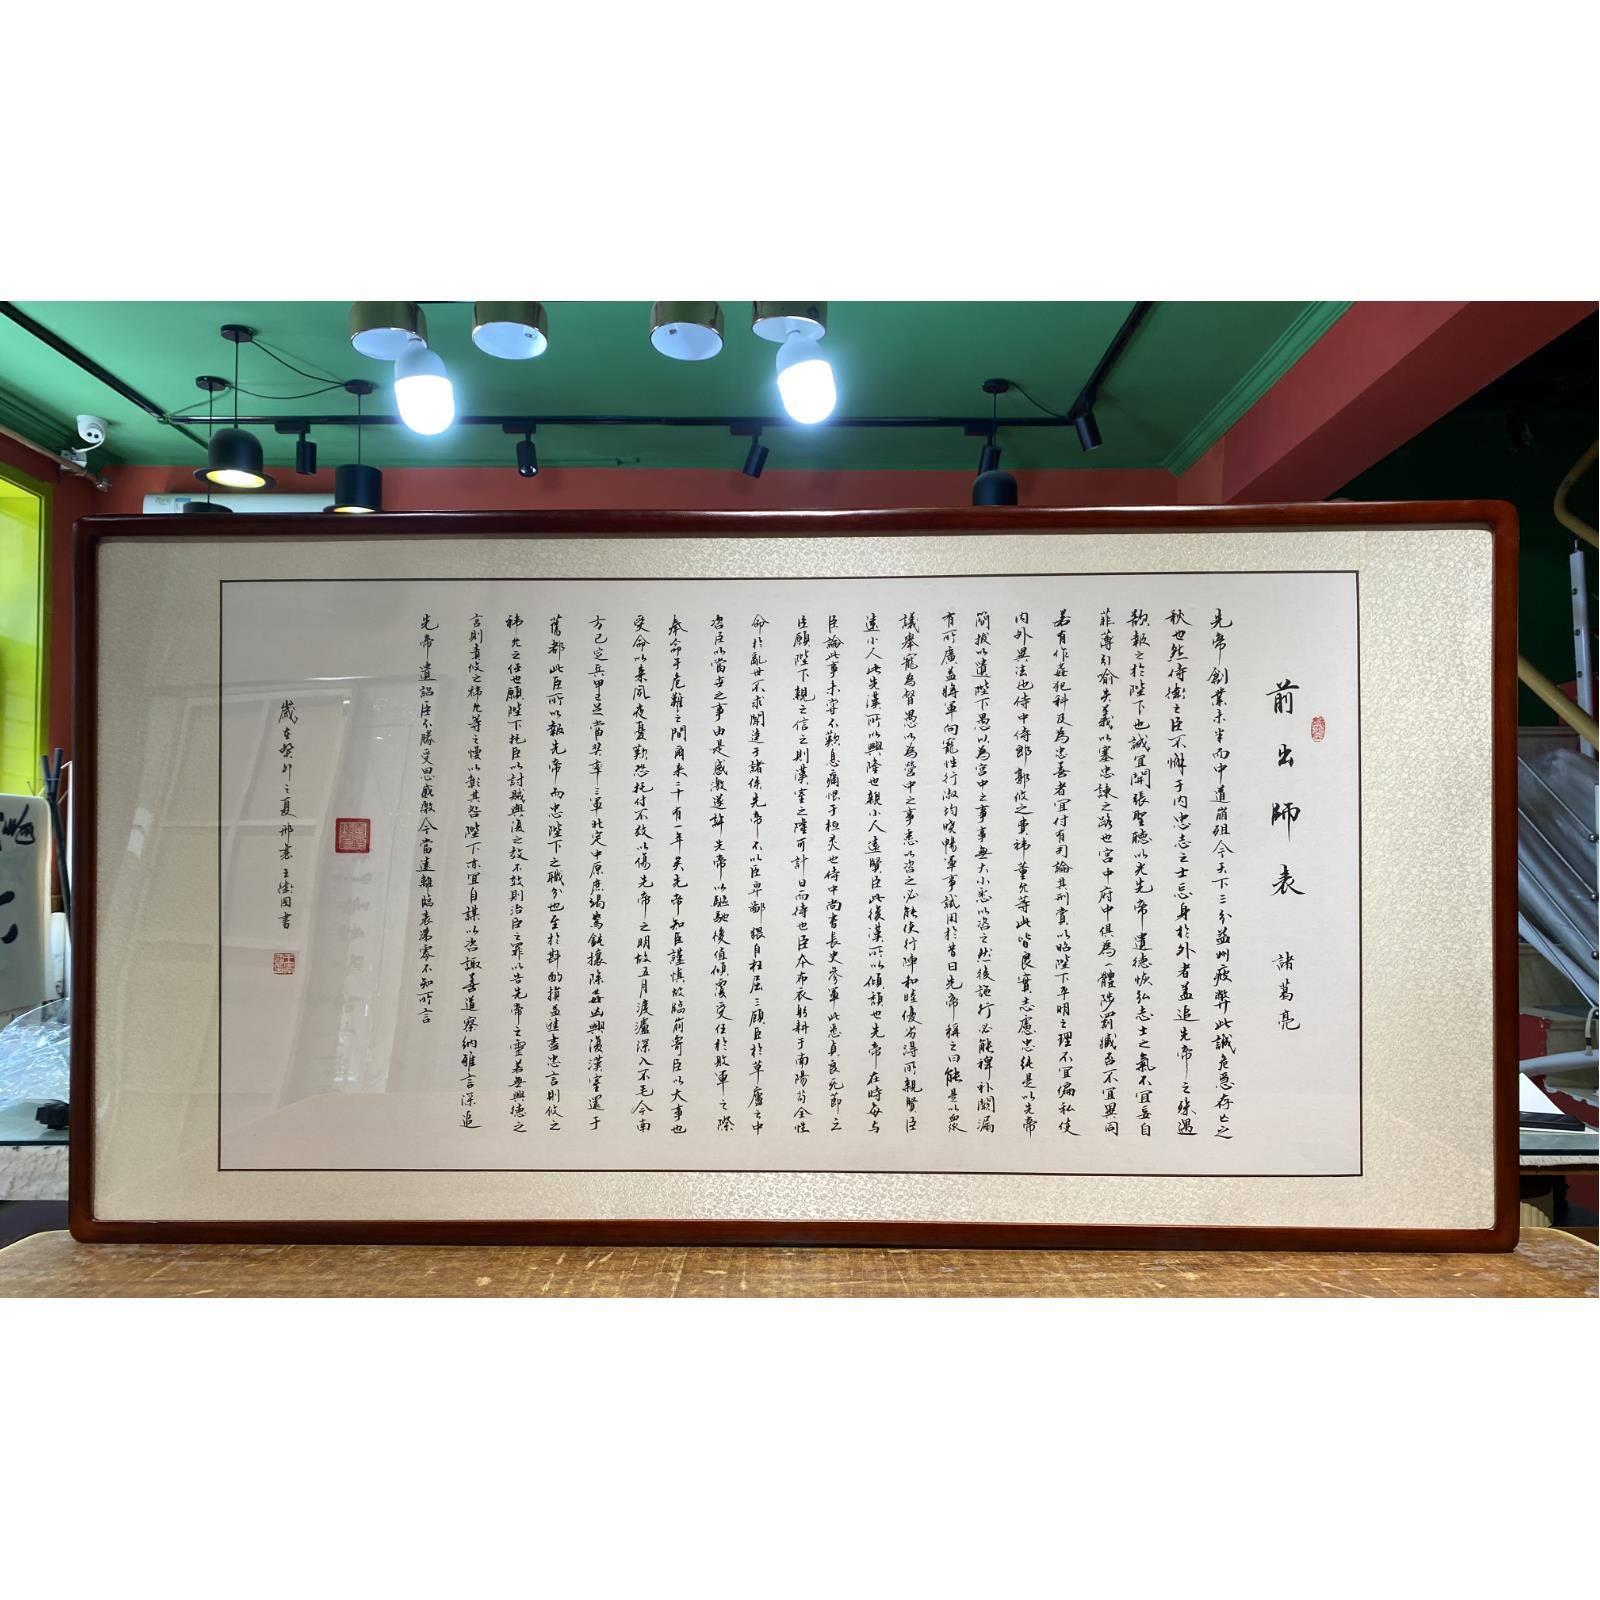 前出師表 諸葛亮
先帝創業未半而中道崩殂今天下三分益州疲弊此誠危急存亡之
秋也然侍衛之臣不懈于内忠志之士忘身於外者蓋追先帝之殊遇
欲報之於陛下也誠宜開張聖聽以光先帝遺德恢弘志士之氣不宜妄自
菲薄引喻失義以塞忠諫之路也宮中府中俱為一體陟罰臧否不宜異同
若有作姦犯科及為忠善者宜付有司論其刑賞以昭陛下平明之理不宜偏私使
内外異法也侍中侍郎郭攸之費禕董允等此皆良實志慮忠純是以先帝
簡拔以遺陛下愚以為宮中之事事無大小悉以咨之然後施行必能裨補闕漏
有所廣益將軍向寵性行淑均曉暢軍事試用於昔日先帝稱之曰能是以眾
議舉寵為督愚以為營中之事悉以咨之必能使行陣和睦優劣得所親賢臣
遠小人此先漢所以興隆也親小人遠賢臣此後漢所以傾頹也先帝在時每与
臣論此事未嘗不歎息痛恨于桓灵也侍中尚書長史參軍此悉貞良死節之
臣願陛下親之信之則漢室之隆可計日而待也臣本布衣躬耕于南陽苟全性
命於亂世不求聞達于諸侯先帝不以臣卑鄙猥自枉屈三顧臣於草廬之中
咨臣以當世之事由是感激遂許先帝以驅馳後值傾覆受任於敗軍之際
奉命于危難之間爾来二十有一年矣先帝知臣謹慎故臨崩寄臣以大事也
受命以来夙夜憂歎恐托付不效以傷先帝之明故五月渡瀘深入不毛今南
方已定兵甲已足當獎率三軍北定中原庶竭駑鈍攘除姦凶興復漢室還于
舊都此臣所以報先帝而忠陛下之職分也至於斟酌損益進盡忠言則攸之
禕允之任也願陛下托臣以討賊興復之效不效則治臣之罪以告先帝之靈若無興德之
言則責攸之禕允等之慢以彰其咎陛下亦宜自謀以咨諏善道察納雅言深追
先帝遺詔臣不勝受恩感激今當遠離臨表涕零不知所言
歲在癸卯之夏邢襄王衛國書